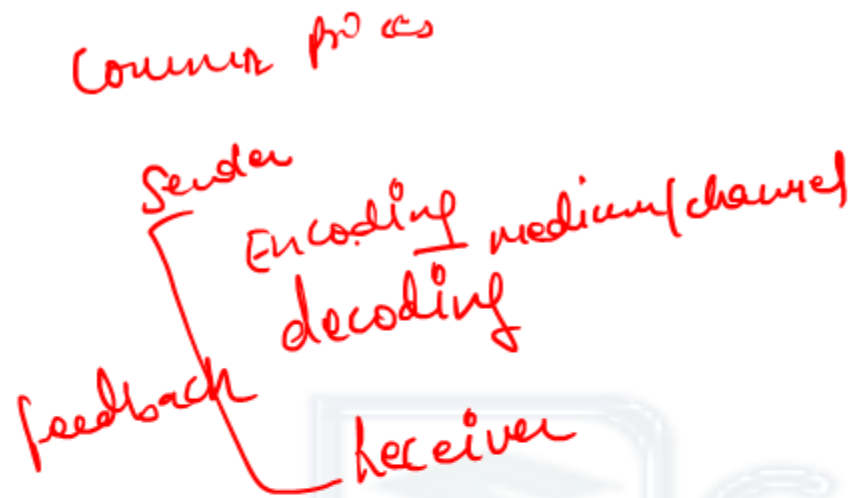 Commn process
Sender
Encoding - medium/channel
decoding
feedback
Receiver